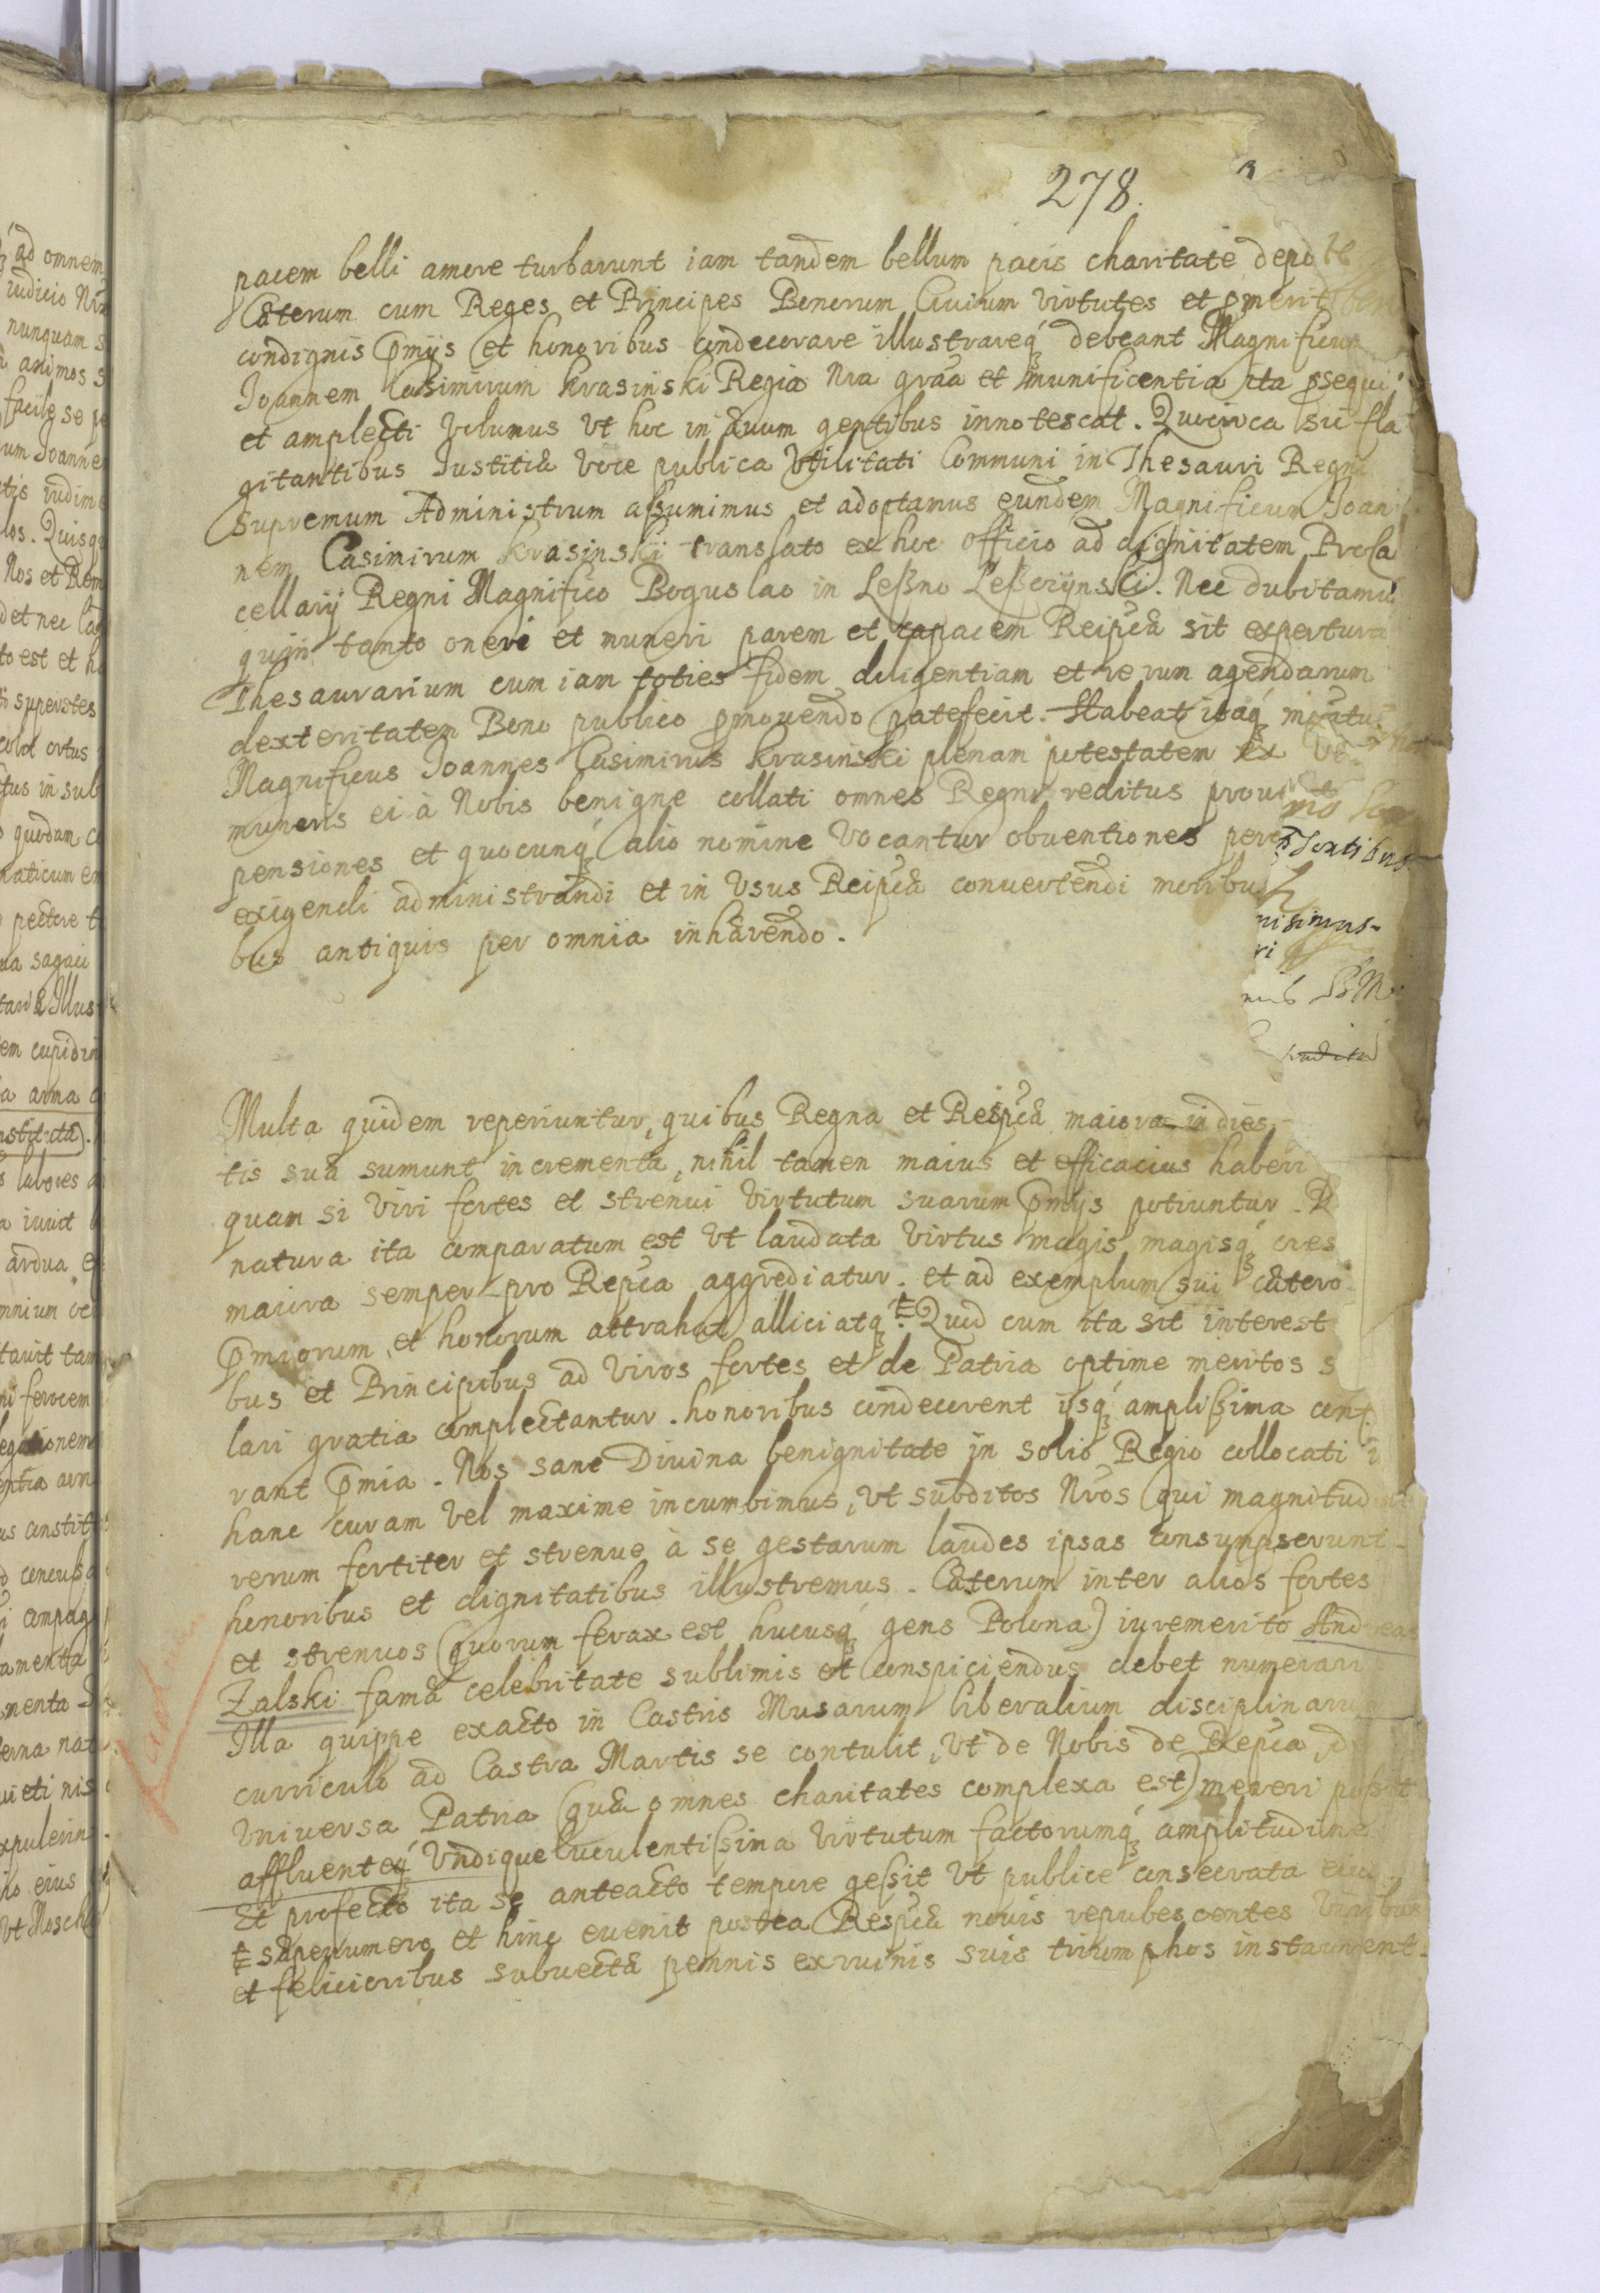 278.
pacem belli amore turbarunt iam tandem bellum pacis charitate depo
Cæterum cum Reges et Principes Bonorum Ciuium virtutes et pmerit
condignis pmijs et honoribus condecorare illustrareq́ debeant Magnificum
Joannem Casimirum Krasinski Regia Nra graã et munificentia ita psequi
et amplecti Volumus Vt hoc in æuum gentibus innotescat. Quocirca sic fla
gitantibus Justitiæ voce publica Vtilitati Communi in Thesauri Regni
Supremum Administrum assumimus et adoptamus eundem Magnificum Joan
nem Casimirum Krasinskij translato ex hoc officio ad dignitatem Proca
cellarij Regni Magnifico Boguslao in Leßno Leßczÿnski. Nec dubitamus
quin tanto oneri et muneri parem et capacem Reipcæ sit expertura
Thesaurarium cum iam toties fidem diligentiam et rerum agendarum
dexteritatem Bono publico pmouendo patefecit. Habeat itaq́
Magnificus Joannes Casimirus Krasinski plenam potestatem ex
muneris ei à Nobis benigne collati omnes Regni reditus proue
pensiones et quocunq́ alio nomine Vocantur obuentiones per
exigendi administrandi et in Vsus Reipcæ conuertendi moribu
bus antiquis per omnia inhærendo.
nisimus
Multa quidem reperiuntur, quibus Regna et Respcæ maiora in dies
tis suæ sumunt incrementa, nihil tamen maius et efficacius haberi
quam si Viri fortes et strenui Virtutum suarum pmijs potiuntur.
natura ita comparatum est Vt laudata Virtus magis magisq́ cres
maiora semper pro Repca aggrediatur. et ad exemplum sui cætero
pmiorum et honorum attrahat alliciatq. Quod cum ita sit interest
bus et Principibus ad Viros fortes et de Patria optime meritos s
lari gratia complectantur. honoribus condecorent ijsq́ amplissima conf
rant pmia. Nos sane Diuina benignitate in solio Regio collocati i
hanc curam vel maxime incumbimus, Vt subditos Nros qui magnitud
rerum fortiter et strenue à se gestarum laudes ipsas consumpserunt
honoribus et dignitatibus illustremus. Cæterum inter alios fortes
et strenuos (quorum ferax est hucusq́ gens Polona) iuremerito Andreas
Zalski famæ celebritate sublimis et conspiciendus debet numerari
Illa quippe exacto in Castris Musarum liberalium disciplinarum
curriculo ad Castra Martis se contulit, Vt de Nobis de Repca, d
Vniuersa Patria (quæ omnes charitates complexa est) mereri possit
affluenteq́ Vndique luculentissima Virtutum factorumq́ amplitudine
Et profecto ita se anteacto tempore gessit Vt publice consecrata eius
sæpenumero et hinc euenit postea Respca nouis repubescentes Viribus
et felicioribus subuecta pennis ex ruinis suis triumphos instaurent.